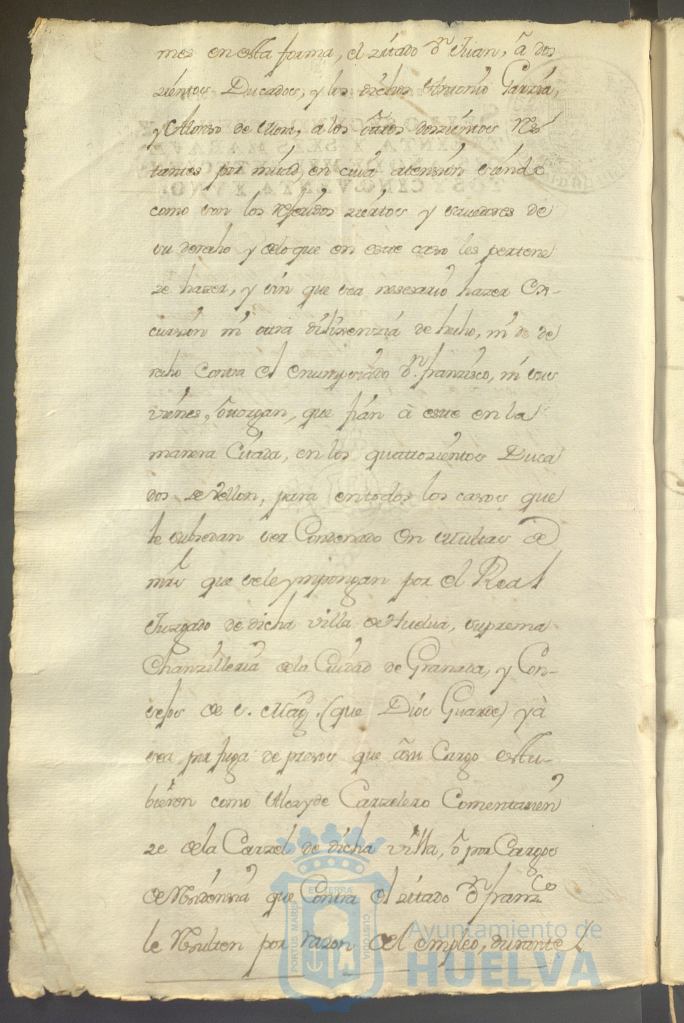 mes en esta forma, el zitado Dn. Juan, â dos
zientos Ducados, y los dichos Antonio Garzia,
y Alonso de Mora, a los otros doszientos Res
tantes por mitad, en cuia atenzion siendo
como son los referidos ziertos y savedores de
su derecho y de lo que en este caso les pertene
ze hazer, y sin que sea nesesario hazer Ex-
cursion ni otra dilixenzia de hecho, ni de de
recho contra el enumpziado Dn. franzisco, ni sus
vienes, otorgan, que fian â este en la
manera Citada, en los quatrozientos Duca
dos de Vellon, para en todos los casos que
le subzedan ser Condenado en multas de
mrs. que se le ympongan por el Real
Juzgado de dicha villa de Huelva, suprema
Chanzilleria de la Ciudad de Granada, y Con-
sejos de S. Mag. (que Dios Guarde) yâ
sea por fuga de presos que â su Cargo estu-
bieron como Alcayde Carzelero Comentarien
ze de la Carzel de dicha villa, ô por Cargos
de Residenzia que Contra el zitado Dn. franzco
le Resulten por razon del empleo, durante l
Ayuntamiento de
HUELVA